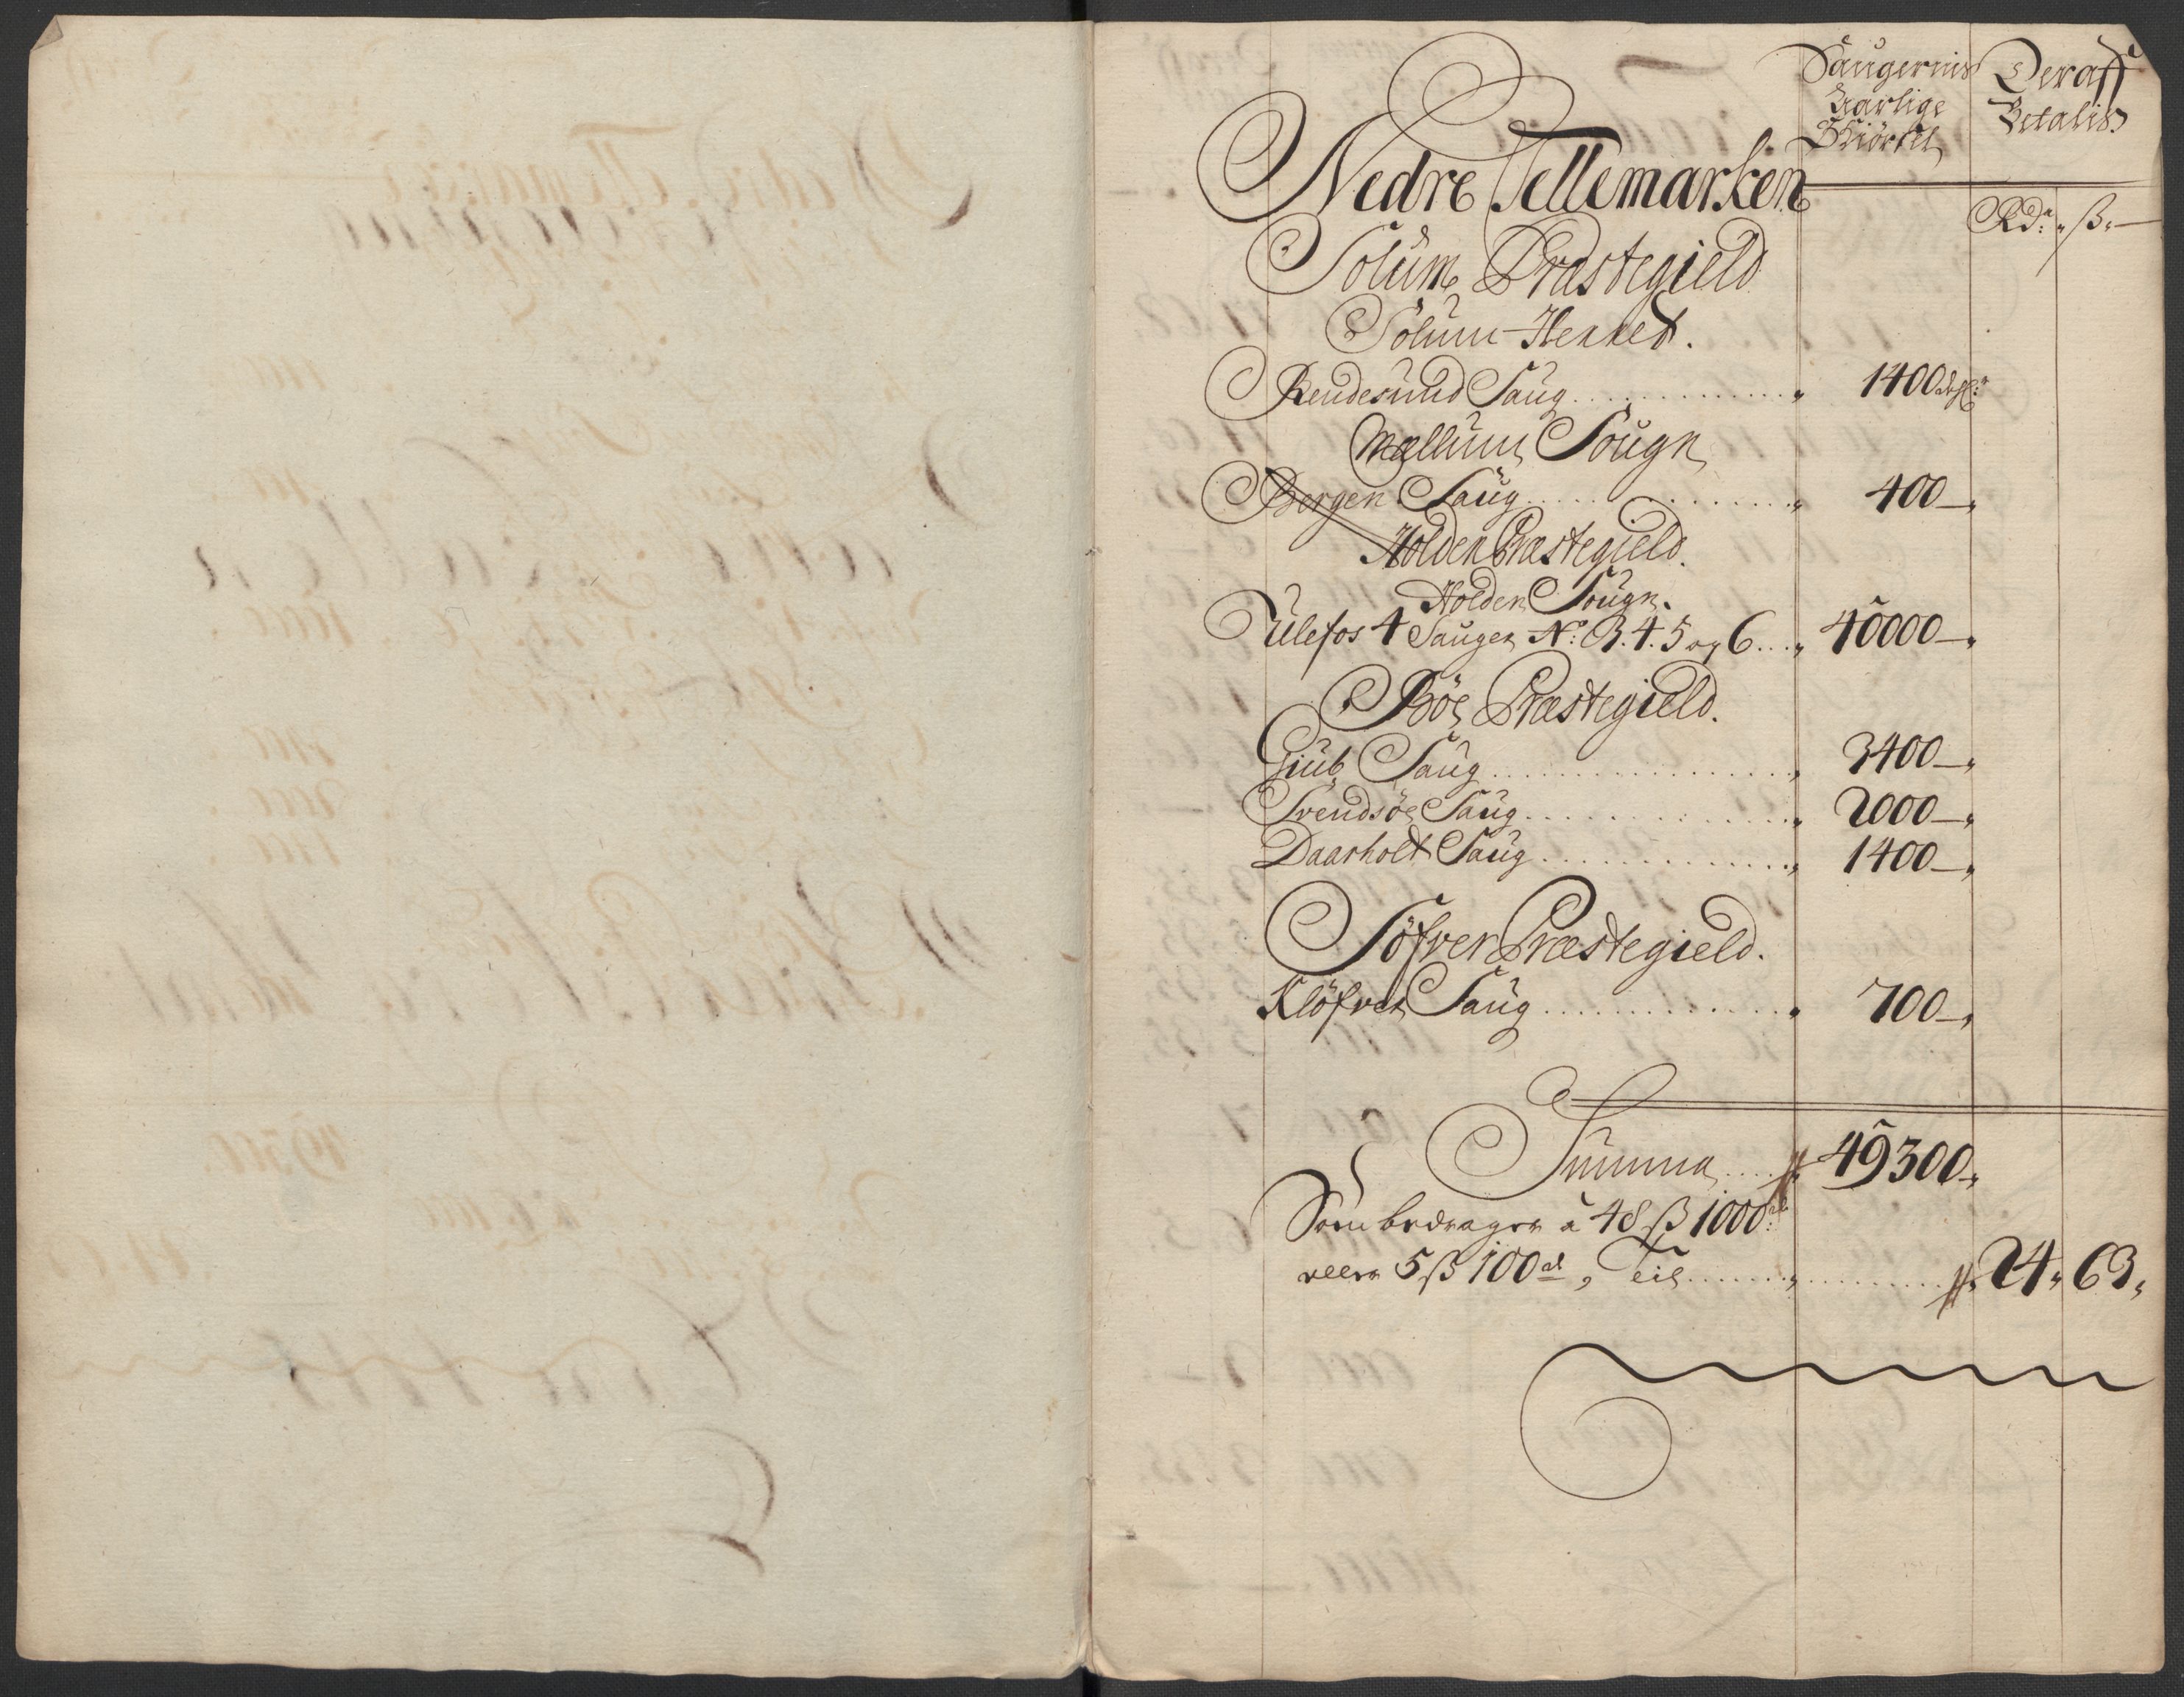 Saugernis Deraff
Aarlige Betalis
Skiörsel
Nedre Tellemarken
Rd: ß
Solum Præstegield
Solum Herret.
Rendesund Saug . . . . . . . . . . . . . 1400
Mællum Sougn
Bergen Saug . . . . . . . . . . . . . 400
Holden Præstegield.
Holden Sougn.
Ulefos 4 Sauger No: 3. 4. 5 og 6 . . . 40000
Böe Præstegield.
Giub Saug . . . . . . . . . . . . . 3400
Svendsöe Saug . . . . . . . . . . . . . 2000
Daarholt Saug . . . . . . . . . . . . . 1400
Söfver Præstegield.
Klöfver Saug . . . . . . . . . . . . . 700
Summa . . . . 49300
Som bedrager a 48 ß 1000de
eller 5 ß 100de, Til . . . . . . . . . . . . . 24 63